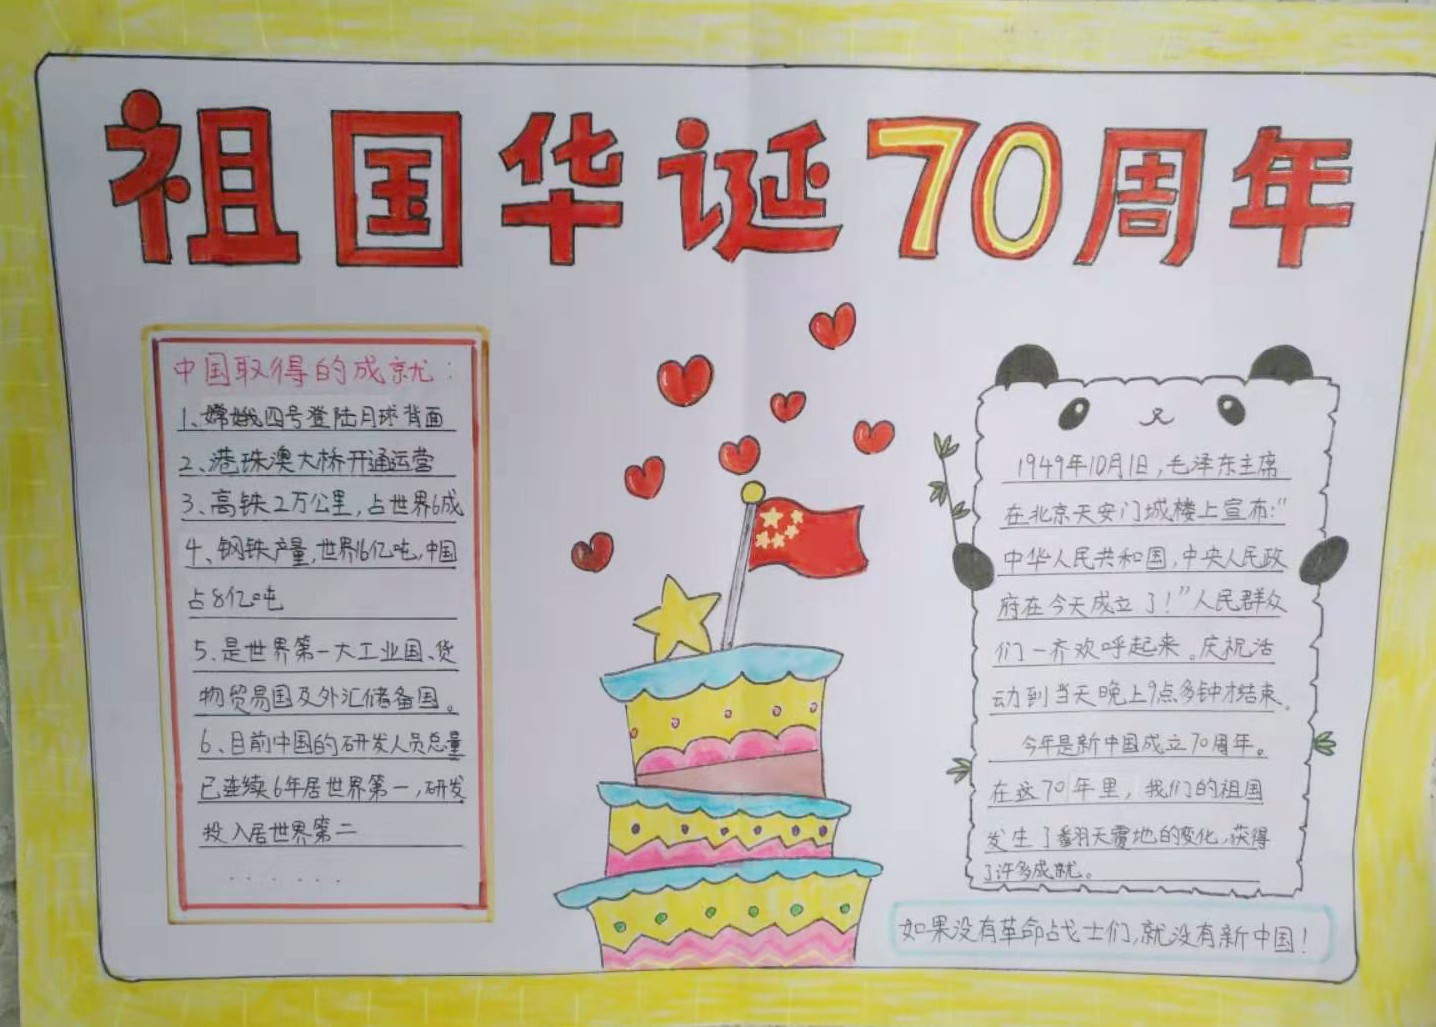 祖国华诞70周年
中国取得的成就：
1、嫦娥四号登陆月球背面
2、港珠澳大桥开通运营
3、高铁2万公里，占世界6成
4、钢铁产量，世界16亿吨，中国
占8亿吨
5、是世界第一大工业国、货
物贸易国及外汇储备国。
6、目前中国的研发人员总量
已连续6年居世界第一，研发
投入居世界第二
......
1949年10月1日，毛泽东主席
在北京天安门城楼上宣布：“
中华人民共和国，中央人民政
府在今天成立了！”人民群众
们一齐欢呼起来。庆祝活
动到当天晚上9点多钟才结束。
今年是新中国成立70周年。
在这70年里，我们的祖国
发生了翻天覆地的变化，获得
了许多成就。
如果没有革命战士们，就没有新中国！